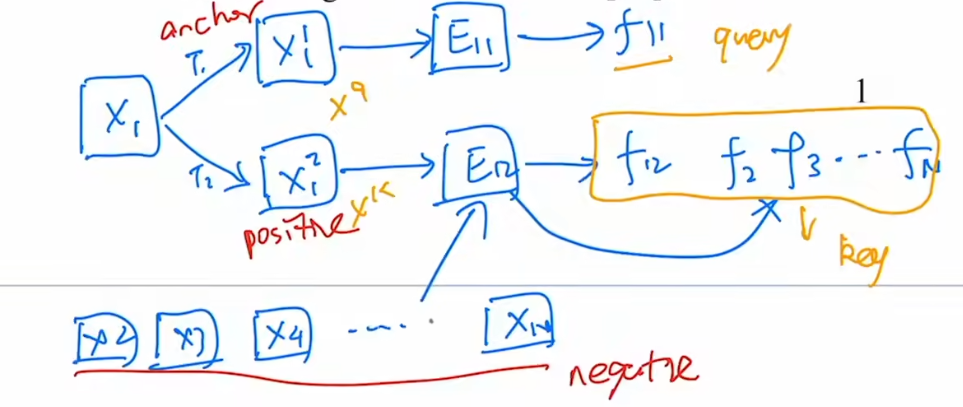 anchor
X₁¹ E₁₁ f₁₁ query
T₁
x^q
1
X₁
T₂
X₁² E₁₂ f₁₂ f₂ f₃ ... f_N
positive x^k
key
X2 X3 X4 ..... X_N
negative